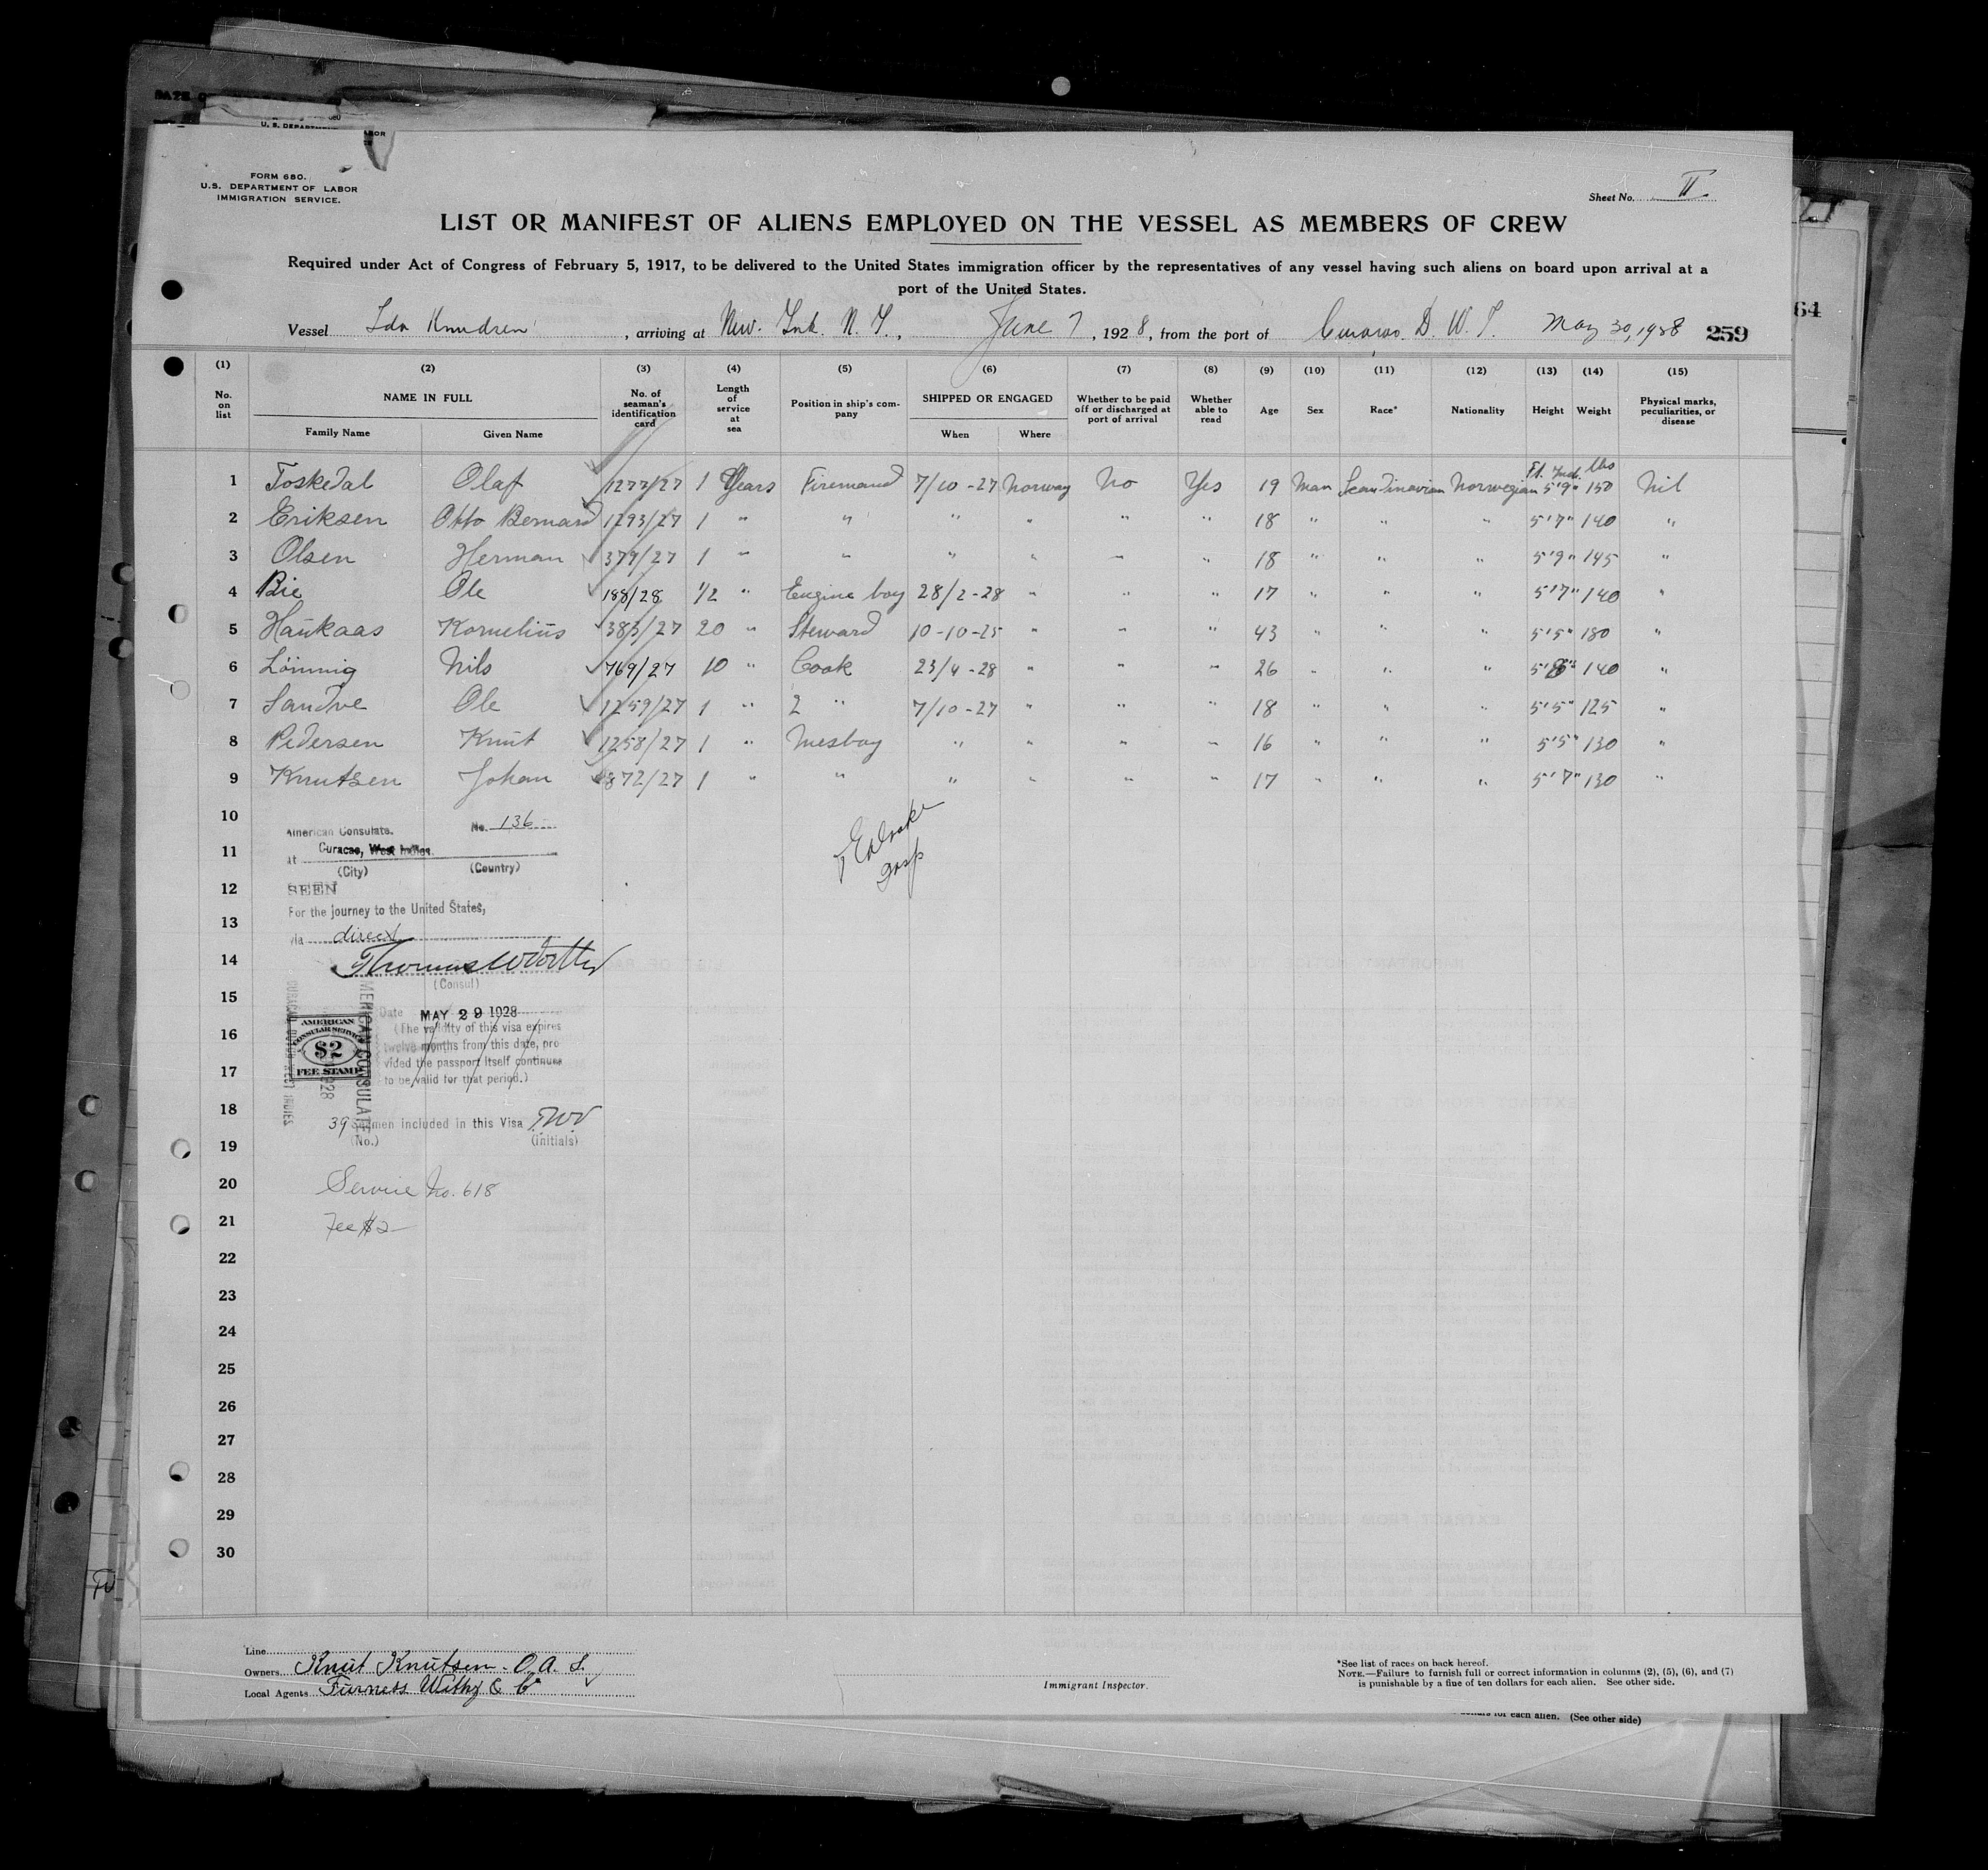 U. S. DEPARTM
FORM 680.
U.S. DEPARTMENT OF LABOR
IMMIGRATION SERVICE.
Sheet No. II
LIST OR MANIFEST OF ALIENS EMPLOYED ON THE VESSEL AS MEMBERS OF CREW
Required under Act of Congress of February 5, 1917, to be delivered to the United States immigration officer by the representatives of any vessel having such aliens on board upon arrival at a
port of the United States.
64
Vessel Ida Knudsen, arriving at New. York. N. Y., June 7, 1928, from the port of Curacao. D. W. I. May 30, 1928 259
(1) (2) (3) (4) (5) (6) (7) (8) (9) (10) (11) (12) (13) (14) (15)
No. on list NAME IN FULL No. of seaman's identification card Length of service at sea Position in ship's company SHIPPED OR ENGAGED Whether to be paid off or discharged at port of arrival Whether able to read Age Sex Race* Nationality Height Weight Physical marks, peculiarities, or disease
Family Name Given Name When Where
Ft. Inch. Lbs
1 Toskedal Olaf 1277/27 1 Years Firemand 7/10-27 Norway No Yes 19 Man Scandinavian Norwegian 5'9" 150 Nil
2 Eriksen Otto Bernard 1293/27 1 " " " " " " 18 " " " 5'7" 140 "
3 Olsen Herman 379/27 1 " " " " " " 18 " " " 5'9" 145 "
4 Bie Ole 188/28 1/2 " Engine boy 28/2-28 " " " 17 " " " 5'7" 140 "
5 Haukaas Kornelius 383/27 20 " Steward 10-10-25 " " " 43 " " " 5'5" 180 "
6 Lönnig Nils 769/27 10 " Cook 23/4-28 " " " 26 " " " 5'8" 140 "
7 Sandve Ole 1259/27 1 " 2 " 7/10-27 " " " 18 " " " 5'5" 125 "
8 Pedersen Knut 1258/27 1 " Mesboy " " " " 16 " " " 5'5" 130 "
9 Knutsen Johan 872/27 1 " " " " " " 17 " " " 5'7" 130 "
10
American Consulate. No. 136
11
at Curacao, West Indies.
(City) (Country)
12
SEEN
For the journey to the United States,
13
via direct
14
(Consul)
15
Date MAY 29 1928
16
(The validity of this visa expires
twelve months from this date, pro
vided the passport itself continues
to be valid for that period.)
AMERICAN
CONSULAR SERVICE
$2
FEE STAMP
AMERICAN CONSULATE
CURACAO, DUTCH WEST INDIES
17
18
39 Seamen included in this Visa TWV
(No.) (initials)
19
20
Service No. 618
21
Fee $2
22
23
24
25
26
27
28
29
30
Line
Owners Knut Knutsen. O. A. S.
Local Agents Furness Withy & Co
Immigrant Inspector.
*See list of races on back hereof.
NOTE.—Failure to furnish full or correct information in columns (2), (5), (6), and (7)
is punishable by a fine of ten dollars for each alien. See other side.
dollars for each alien. (See other side)